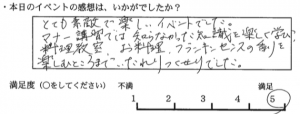 ・本日のイベントの感想は、いかがでしたか？
とても素敵で楽しいイベントでした。
マナー講習では知らなかった知識を楽しく学び、
料理教室、お料理、フランキンセンスの香りを
楽しむところまで…たれりつくせりでした。
満足度(〇をしてください)
不満 満足
1 2 3 4 5